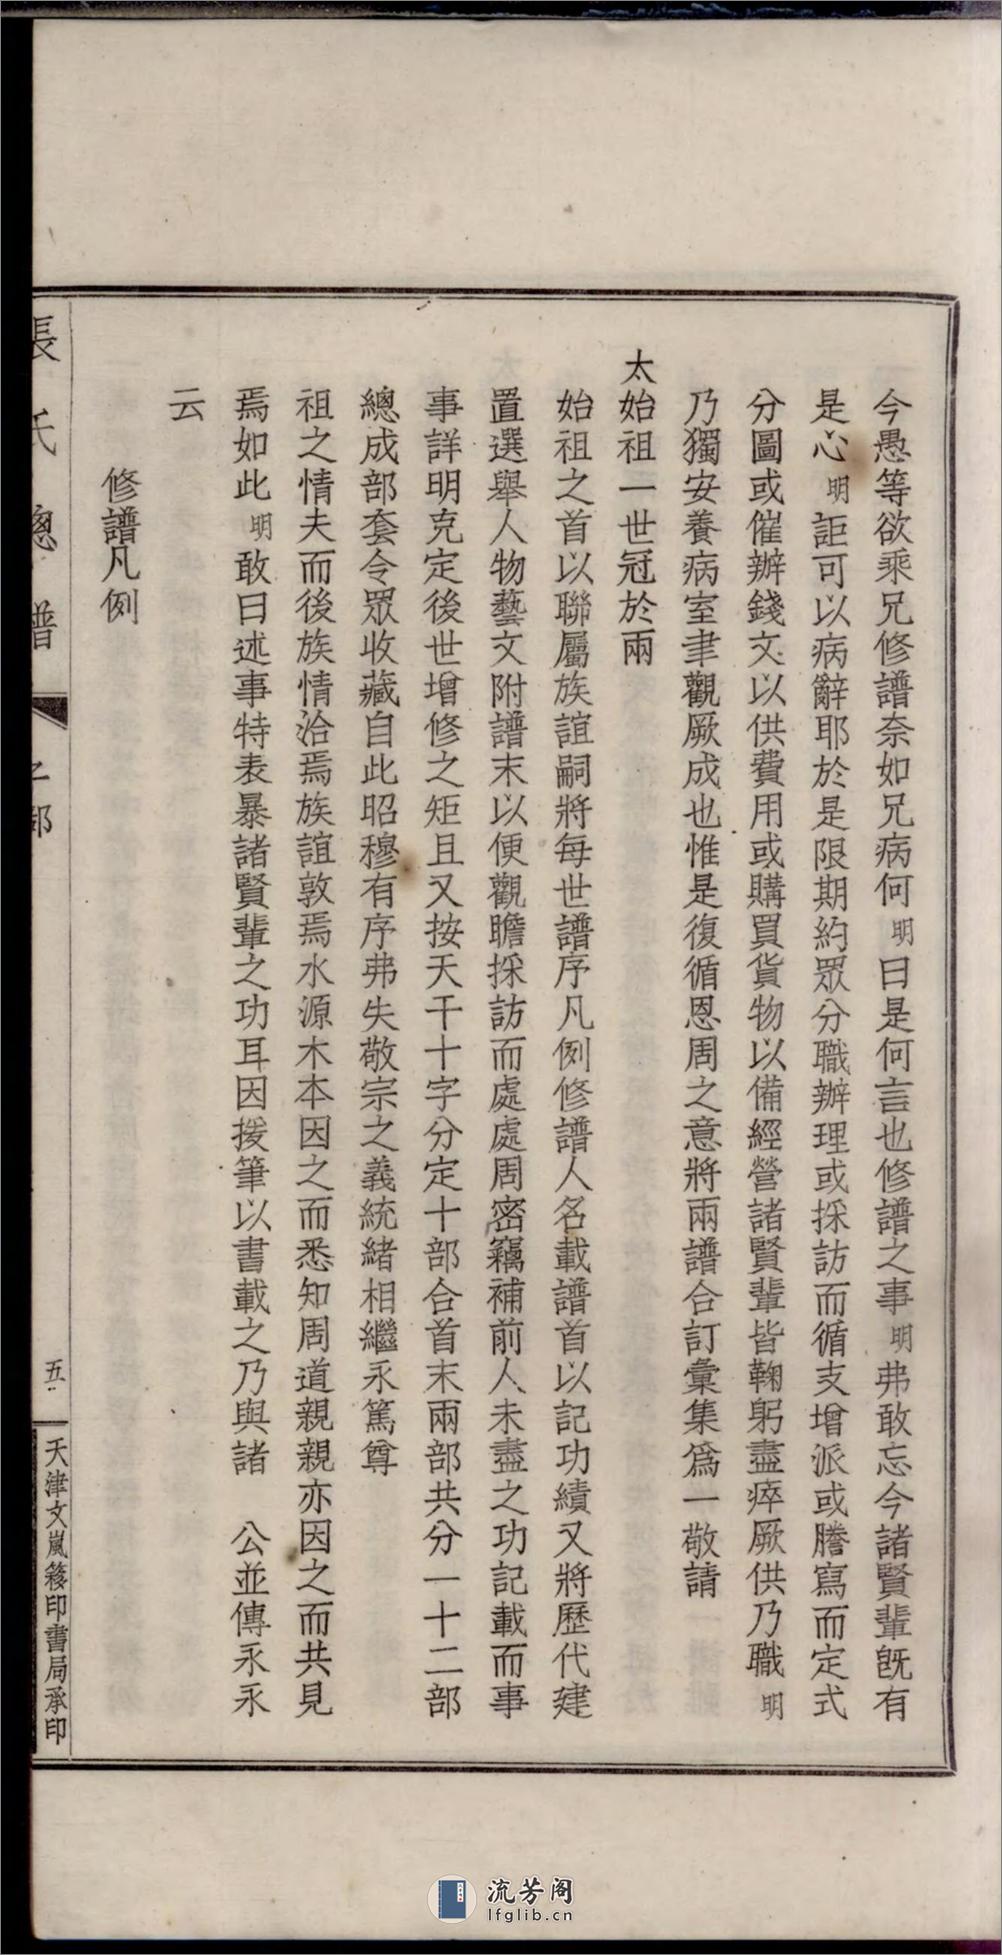 今愚等欲乘兄修譜奈如兄病何明曰是何言也修譜之事明弗敢忘今諸賢輩旣有
是心明詎可以病辭耶於是限期約眾分職辦理或採訪而循支增派或謄寫而定式
分圖或催辦錢文以供費用或購買貨物以備經營諸賢輩皆鞠躬盡瘁厥供乃職明
乃獨安養病室聿觀厥成也惟是復循恩周之意將兩譜合訂彙集爲一敬請
太始祖一世冠於兩
始祖之首以聯屬族誼嗣將每世譜序凡例修譜人名載譜首以記功績又將歷代建
置選舉人物藝文附譜末以便觀瞻採訪而處處周密竊補前人未盡之功記載而事
事詳明克定後世增修之矩且又按天干十字分定十部合首末兩部共分一十二部
總成部套令眾收藏自此昭穆有序弗失敬宗之義統緒相繼永篤尊
祖之情夫而後族情洽焉族誼敦焉水源木本因之而悉知周道親親亦因之而共見
焉如此明敢曰述事特表暴諸賢輩之功耳因援筆以書載之乃與諸　公並傳永永
云
修譜凡例
張氏總譜
五
天津文嵐簃印書局承印
流芳阁
lfglib.cn